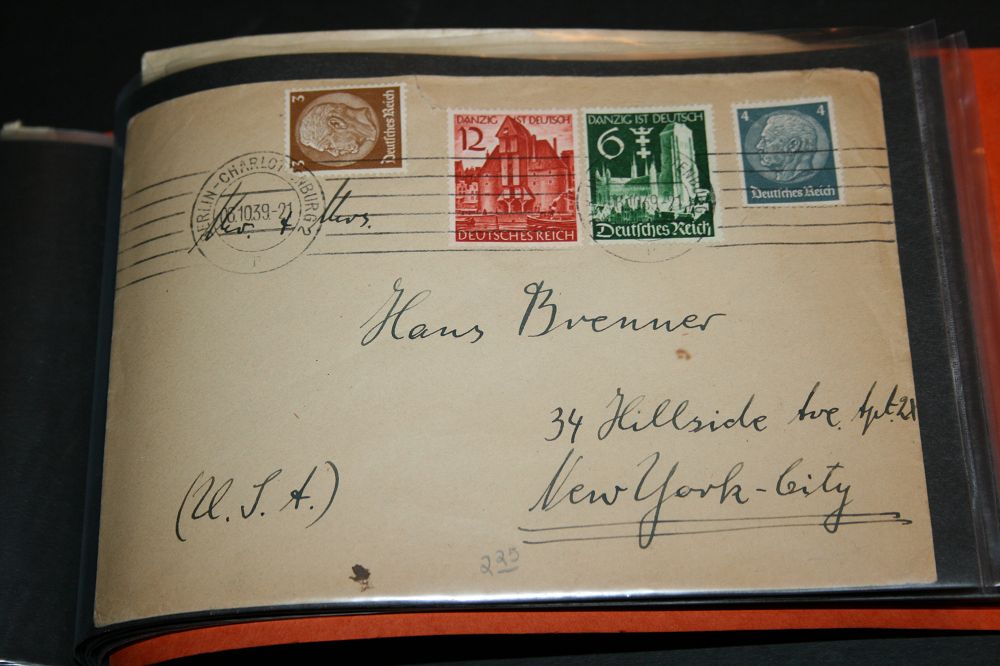 3
3
Deutsches Reich
DANZIG IST DEUTSCH
12
DEUTSCHES REICH
DANZIG IST DEUTSCH
6
Deutsches Reich
4
4
Deutsches Reich
BERLIN-CHARLOTTENBURG 2
06.10.39.-21
Mr. & Mrs.
Hans Brenner
34 Hillside Ave. Apt. 2
New York-City
(U. S. A.)
225